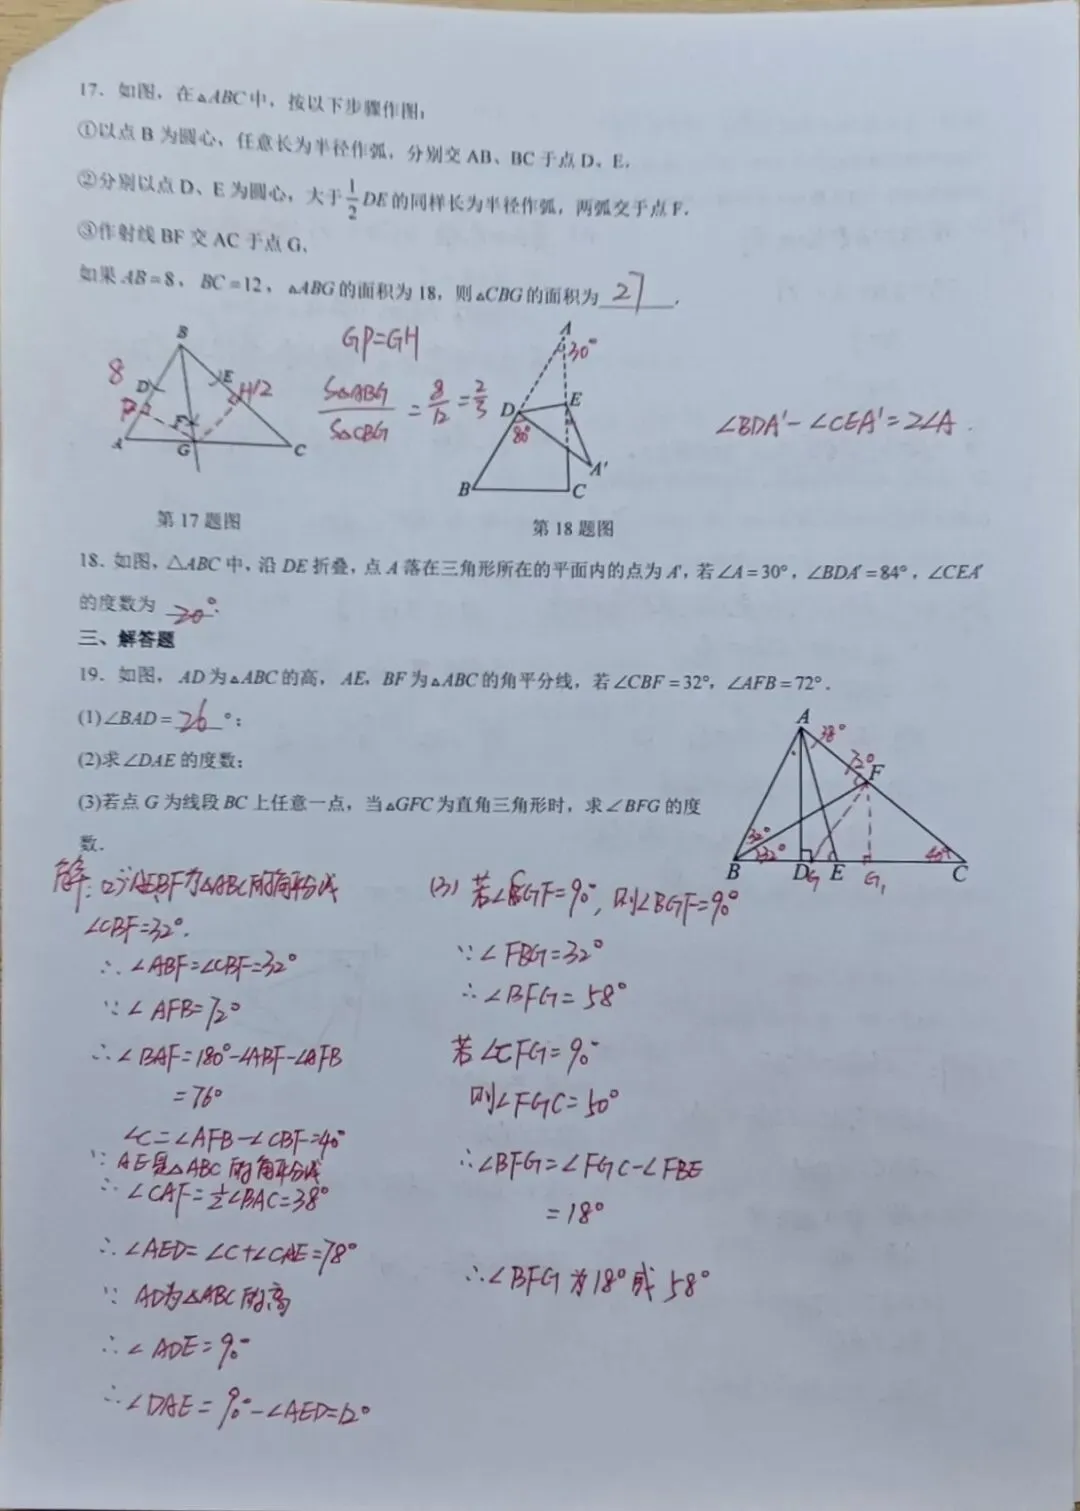 17. 如图，在△ABC中，按以下步骤作图：
①以点 B 为圆心，任意长为半径作弧，分别交 AB、BC 于点 D、E.
②分别以点 D、E 为圆心，大于\frac{1}{2}DE的同样长为半径作弧，两弧交于点 F.
③作射线 BF 交 AC 于点 G.
如果 AB=8，BC=12，△ABG的面积为 18，则△CBG的面积为 27 .
B
8
D
E
H12
P
F
A
G
C
GP=GH
S△ABG/S△CBG = 8/12 = 2/3
A
30°
D
E
80°
A'
B
C
∠BDA'-∠CEA'=2∠A.
第 17 题图
第 18 题图
18. 如图，△ABC 中，沿 DE 折叠，点 A 落在三角形所在的平面内的点为 A'，若∠A=30°，∠BDA'=84°，∠CEA'
的度数为 20°.
三、解答题
19. 如图，AD为△ABC的高，AE，BF为△ABC的角平分线，若∠CBF=32°，∠AFB=72°.
(1)∠BAD= 26 °；
(2)求∠DAE的度数；
(3)若点 G 为线段 BC 上任意一点，当△GFC为直角三角形时，求∠BFG的度
数.
A
38°
72°
F
32°
32°
40°
B
D
G
E
G₁
C
解：(2)∵AE,BF为△ABC的角平分线
∠CBF=32°.
∴∠ABF=∠CBF=32°
∵∠AFB=72°
∴∠BAF=180°-∠ABF-∠AFB
=76°
∠C=∠AFB-∠CBF=40°
∵AE是△ABC的角平分线
∴∠CAF=½∠BAC=38°
∴∠AED=∠C+∠CAE=78°
∵AD为△ABC的高
∴∠ADE=90°
∴∠DAE=90°-∠AED=12°
(3) 若∠CGF=90°，则∠BGF=90°
∵∠FBG=32°
∴∠BFG=58°
若∠CFG=90°
则∠FGC=50°
∴∠BFG=∠FGC-∠FBE
=18°
∴∠BFG为18°或58°